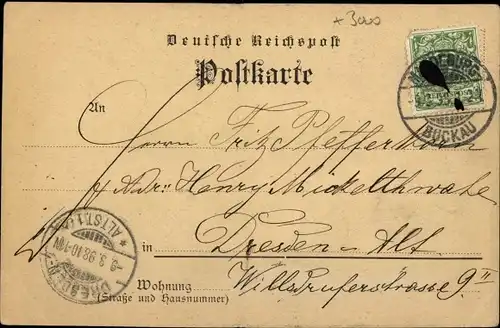 + 3000
Deutsche Reichspost
Postkarte
MAGDEBURG
REICHSPOST
BUCKAU
An
Herrn Fritz Pfefferkorn
p. Adr: Henry Mickelthwate
in Dresden-Alt.
Wohnung Willsdruferstrasse 9 II
(Straße und Hausnummer)
DRESDEN
ALTST. 1
9.8.98.10-11V